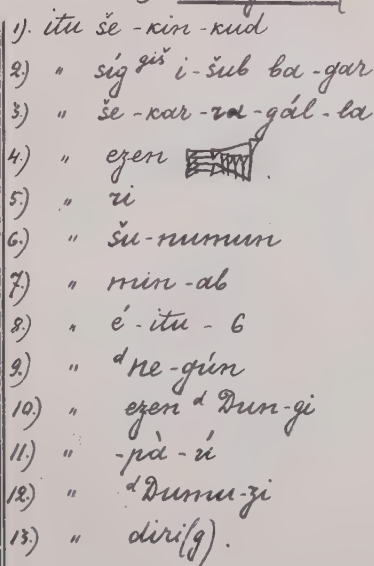 1). itu še-kin-kud
2.) " síg ᵍⁱˢ̌ i-šub ba-gar
3.) " še-kar-ra-gál-la
4.) " ezen
5.) " ri
6.) " šu-numun
7.) " min-ab
8.) " é-itu-6
9.) " ᵈne-gún
10.) " ezen ᵈDun-gi
11.) " -pà-ú
12.) " ᵈDumu-zi
13.) " diri(g).